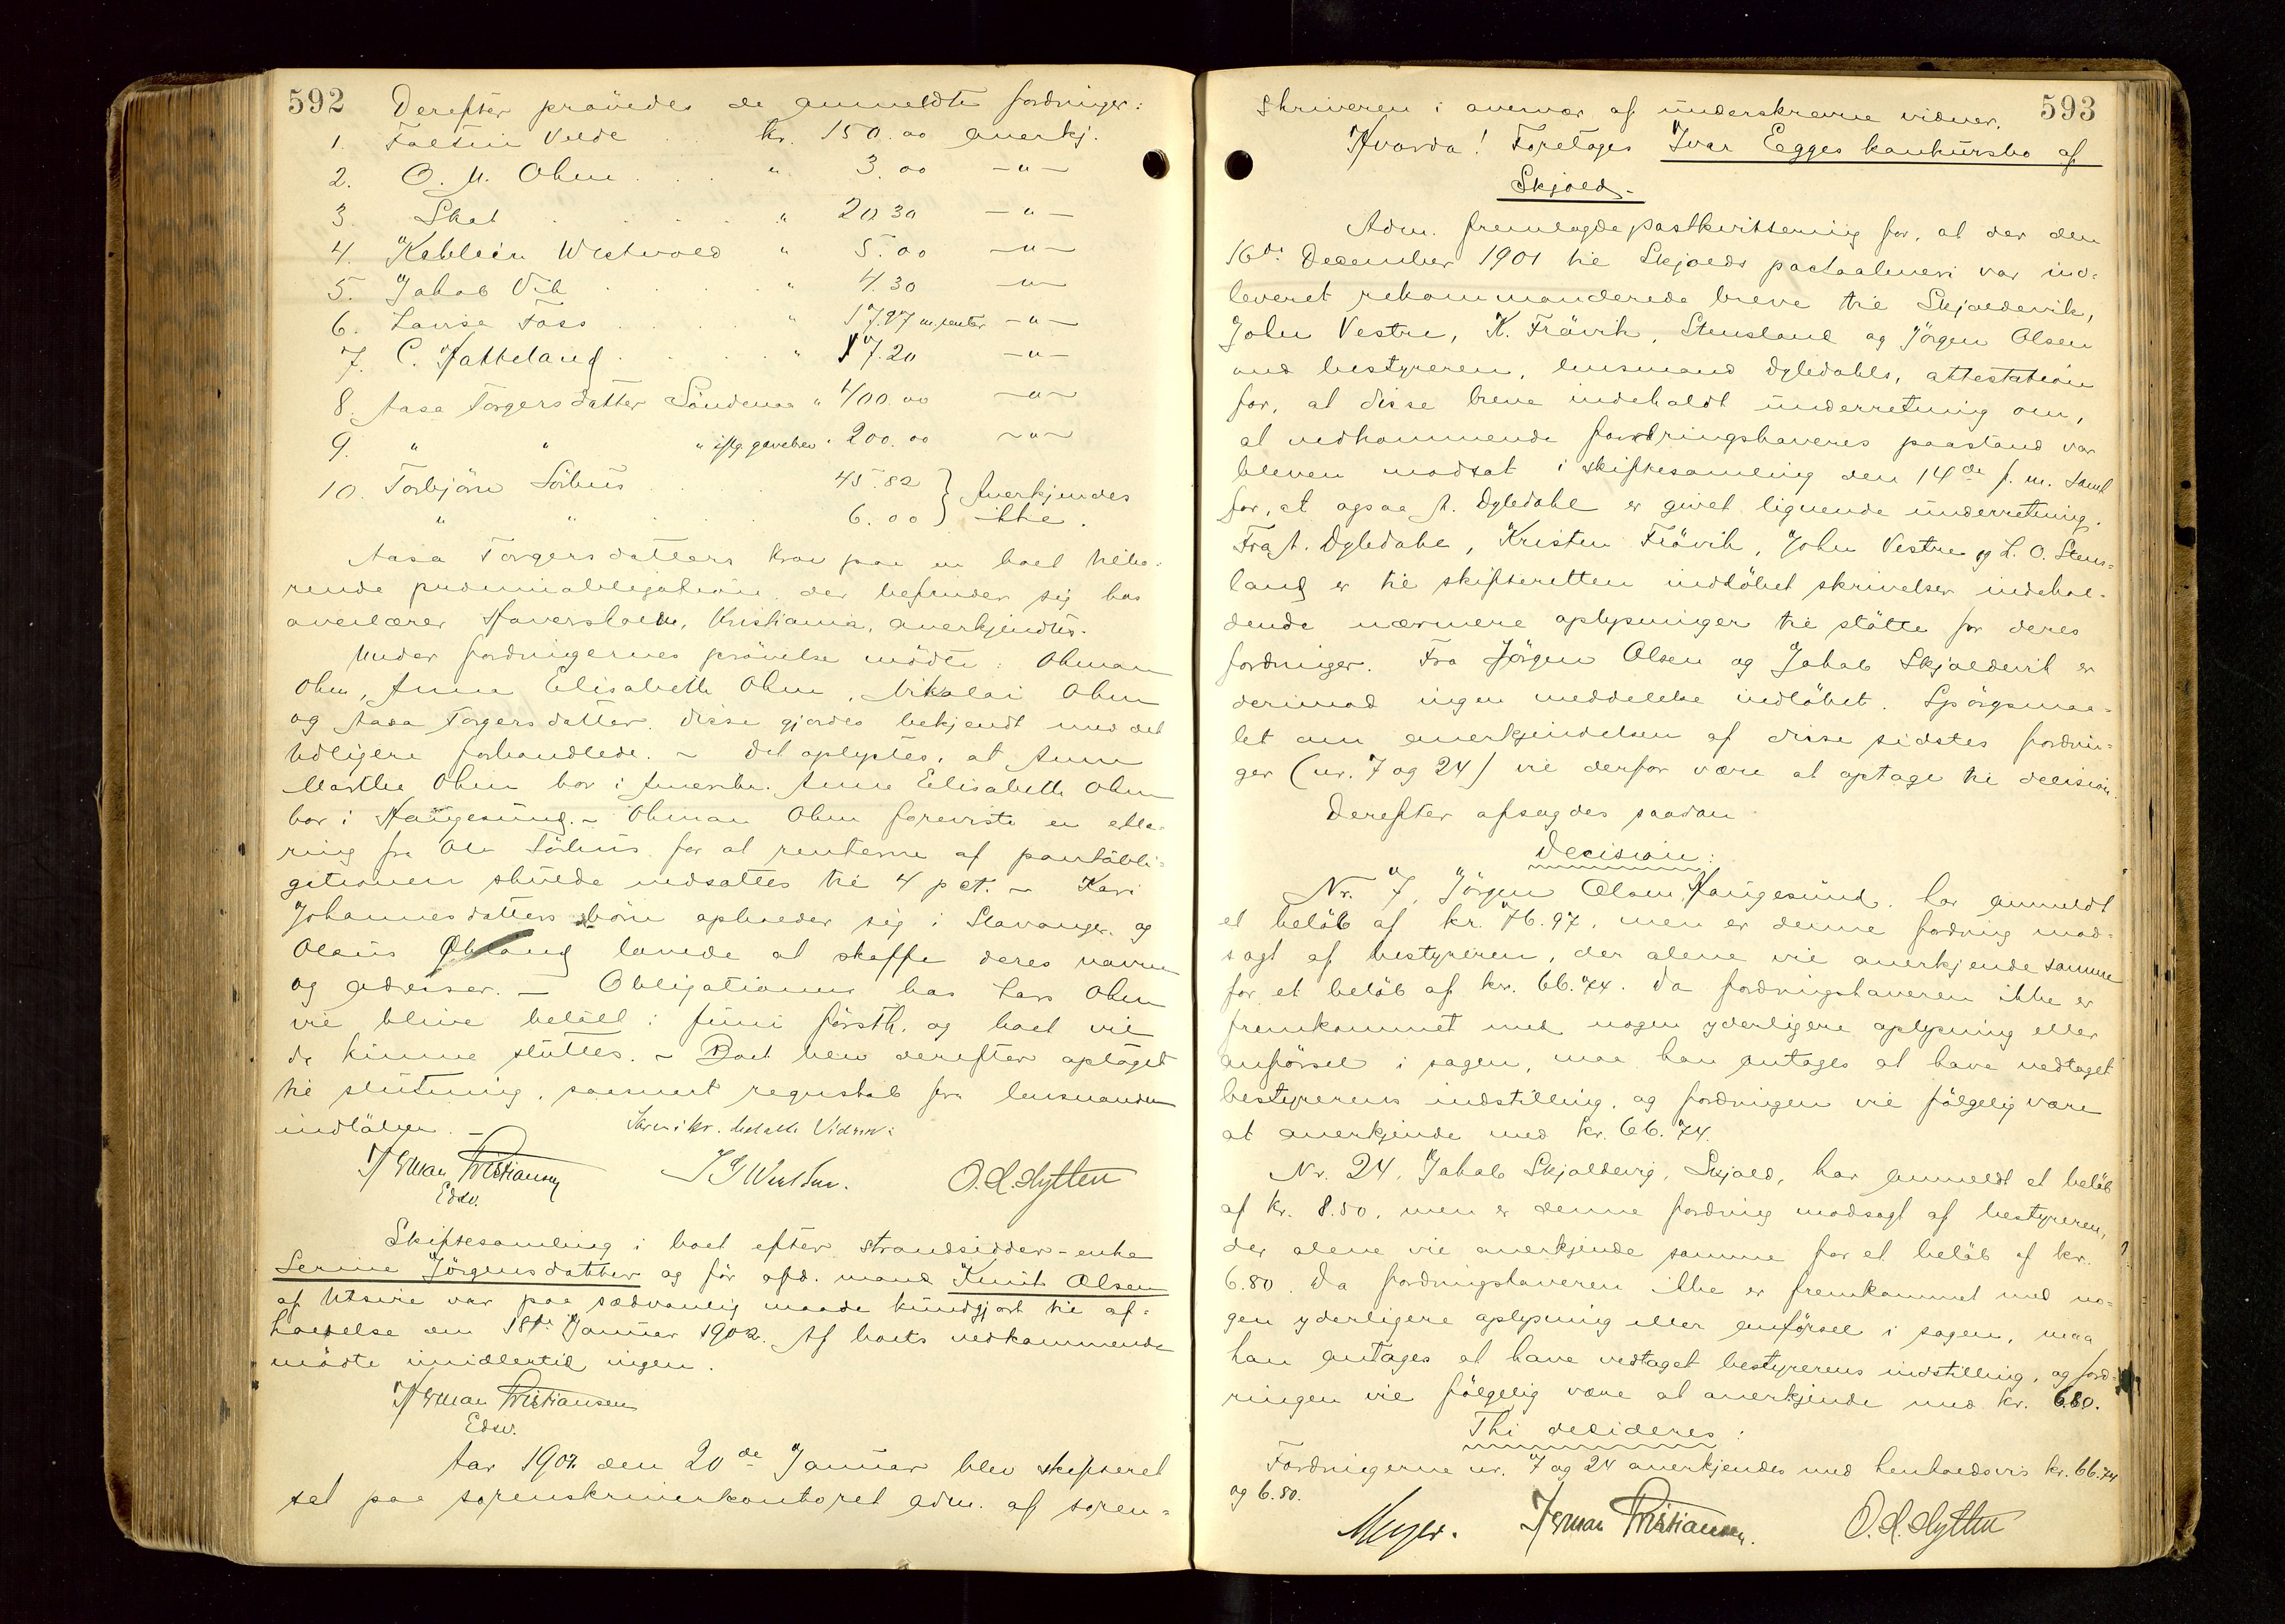 592 Derefter prøvedes de anmeldte fordringer:
1. Faltin Velde . . kr. 150.00 anerkj.
2. O. M. Ohm . . . " 3.00 -"-
3. Skat . . . . " 20.30 -"-
4. Kathleen Westvold " 5.00 -"-
5. Jakob Vik . . . . " 4.30 -"-
6. Lavise Foss . . . " 17.27 m. renter -"-
7. C. Hatteland . . . . " 17.20 -"-
8. Aasa Torgersdatter Søndenaa " 400.00 -"-
9. " " " iflg. gavebrev " 200.00 -"-
10. Torbjørn Sørhus . . . 45.82 } Anerkjendes
" " . . . 6.00 } ikke.
Aasa Torgersdatters krav paa en boet tilhø-
rende præmieobligation, der befinder sig hos
overlærer Haversholm, Kristiania, anerkjendtes.
Under fordringernes prøvelse mødte: Ohman
Ohm, Anna Elisabeth Ohm, Nikolai Ohm
og Aasa Torgersdatter. Disse gjordes bekjendt med det
tidligere forhandlede. - Det oplystes, at Anne
Marthe Ohm bor i Amerika. Anne Elisabeth Ohm
bor i Haugesund. - Ohman Ohm foreviste en erklæ-
ring fra Ole Sørhus for at renterne af pantobli-
gationen skulde nedsættes til 4 pct. - Kari
Johannesdatters børn opholder sig i Stavanger og
Olaus Økland lovede at skaffe deres navne
og adresser. - Obligationen hos Lars Ohm
vil blive betalt i juni førsth. og boet vil
da kunne sluttes. - Boet blev derefter optaget
til slutning, saasnart regnskab fra lensmanden
indløber. - Skrev 1 kr. betalte Vidner:
Herman Kristiansen J G Westbøe. O. H. Hytten
Edsv.
Skiftesamling i boet efter strandsidder-enke
Serine Jørgensdatter og før afd. mand Knut Olsen
af Utsire var paa sædvanlig maade kundgjort til af-
holdelse den 18de Januar 1902. Af boets vedkommende
mødte imidlertid ingen.
Herman Kristiansen
Edsv.
Aar 1902 den 20de Januar blev skifteret
sat paa sorenskriverkontoret adm. af soren-
skriveren i overvær af underskrevne vidner. 593
Hvorda! Foretoges Ivar Egges konkursbo af
Skjold.-
Adm. fremlagde postkvittering for, at der den
16de December 1901 til Skjolds postaabneri var ind-
leveret rekommanderede breve til Skjoldevik,
John Vestre, K. Frøvik, Stensland og Jørgen Olsen
med bestyreren, lensmand Dyledahls, attestation
for, at disse breve indeholdt underretning om,
at vedkommende fordringshaveres paastand var
bleven modsat i skiftesamling den 14de s. m. samt
for, at ogsaa A. Dyledahl er givet lignende underretning.
Fra A. Dyledahl, Kristen Frøvik, John Vestre og L. O. Stens-
land er til skifteretten indløbet skrivelser indehol-
dende nærmere oplysninger til støtte for deres
fordringer. Fra Jørgen Olsen og Jakob Skjoldevik er
derimod ingen meddelelse indløbet. Spørgsmaa-
let om anerkjendelsen af disse sidstes fordrin-
ger (nr. 7 og 24) vil derfor være at optage til decision.
Derefter afsagdes saadan
Decision:
Nr. 7, Jørgen Olsen, Haugesund, har anmeldt
et beløb af kr. 76.97, men er denne fordring mod-
sagt af bestyreren, der alene vil anerkjende samme
for et beløb af kr. 66.74. Da fordringshaveren ikke er
fremkommet med nogen yderligere oplysning eller
anførsel i sagen, maa han antages at have vedtaget
bestyrerens indstilling, og fordringen vil følgelig være
at anerkjende med kr. 66.74.
Nr. 24, Jakob Skjoldevig, Skjold, har anmeldt et beløb
af kr. 8.50, men er denne fordring modsagt af bestyreren,
der alene vil anerkjende samme for et beløb af kr.
6.80. Da fordringshaveren ikke er fremkommet med no-
gen yderligere oplysning eller anførsel i sagen, maa
han antages at have vedtaget bestyrerens indstilling, og ford-
ringen vil følgelig være at anerkjende med kr. 6.80.
Thi decideres:
Fordringerne nr. 7 og 24 anerkjendes med henholdsvis kr. 66.74
og 6.80.
Meyer. Herman Kristiansen. O. H. Hytten